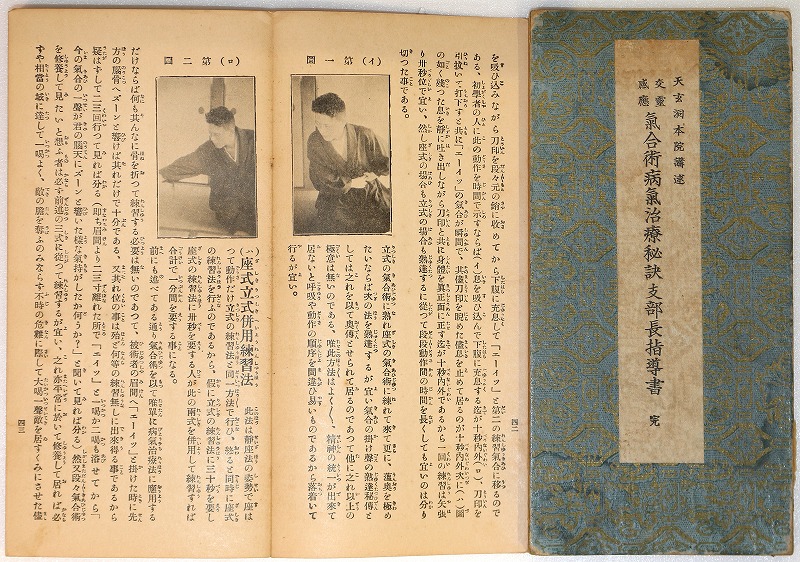 天玄洞本院講述
交靈
感應
氣合術病氣治療秘訣支部長指導書 完
四二
を吸ひ込みながら刀印を段々元の鞘に收めてから下腹に充息して「エーイッ」と第二の練習氣合に移るので
ある、初學者の人に此の動作を時間で示すならば(イ)息を吸ひ込んで下腹に充息する迄が十秒内外(ロ)、刀印を
引拔いて打下すと共に「エーイッ」の氣合が瞬間で、其儘刀印を睨めた儘息を止めて居るのが十秒内外次に(ハ)圖
の如く殘つた息を靜に吐き出しながら刀印と共に身體を眞正面に正す迄が十秒内外であるから一回の練習は矢張
り卅秒位で宜い、然し座式の場合も立式の場合も熟達するに從つて段段動作間の時間を長くしても宜いのは分り
切つた事である。
(イ) 第一圖
立式の氣合術に熟れ座式の氣合術に練れて來て更に、薀奥を極め
たいならば次の法を熟達するが宜い氣合の掛け聲の熟達秘傳と
しては之れを以て奥傳とせられて居るのであつて他に之れ以上の
極意は無いのである、唯此方法はよく〱、精神の統一が出來て
居ないと呼吸や動作の順序を間違ひ易いものであるから落着いて
行るが宜い。
(ロ) 第二圖
(ハ)座式立式併用練習法
此法は靜座法の姿勢で座は
つて動作だけ立式の練習法と同一方法で行ひ、終ると同時に座式
の練習法に行ふのであるから、假に立式の練習法に三十秒を要し
座式の練習法に卅秒を要する人が此の兩式を併用して練習すれば
合計で一分間を要する事になる。
前にも述べてある通り氣合術を以て唯單に病氣治療法に應用する
だけならば何も其んなに骨を折つて練習する必要は無いのであつて、被術者の眉間へ「エーイッ」と掛けた時に先
方の腦骨へズーンと響けば其れだけで十分である、又其れ位の事は殆ど何等の練習無しに出來得る事であるから
疑はずして二三回行つて見れば分る(即ち眉間より二三寸離れた所で「エーイッ」と一喝か二喝も浴せてから「
今の氣合の一聲が君の腦天にズーンと響いた樣な氣持がしたか何うか?」と聞いて見れば分る)然又段々氣合術
を修養して見たいと思ふ者は必ず前述の三式に從つて練習するが宜い、之れ弥平常に於いて修養して居れば必
ずや相當の域に達して一喝よく、敵の膽を奪ふのみならず不時の危難に際して大喝一聲敵を居すくみにさせた儘
四三